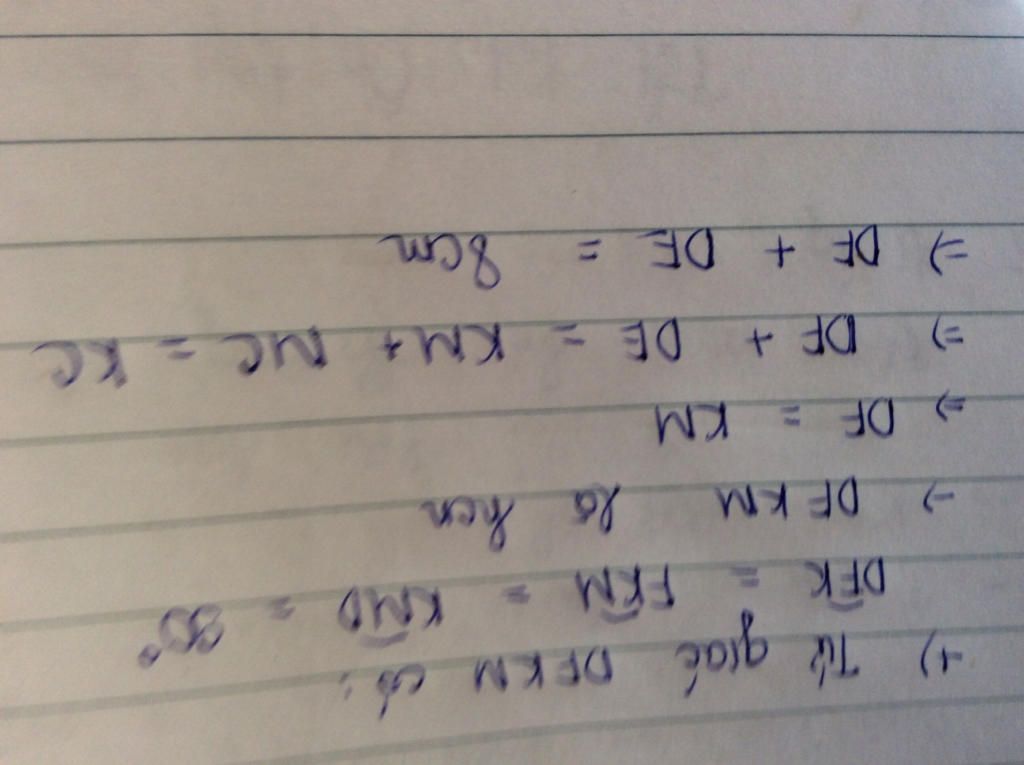 +) Tứ giác DFKM có:
DFK = FKM = KMD = 90°
→ DFKM là hcn
=> DF = KM
=> DF + DE = KM + MC = KC
=> DF + DE = 8cm